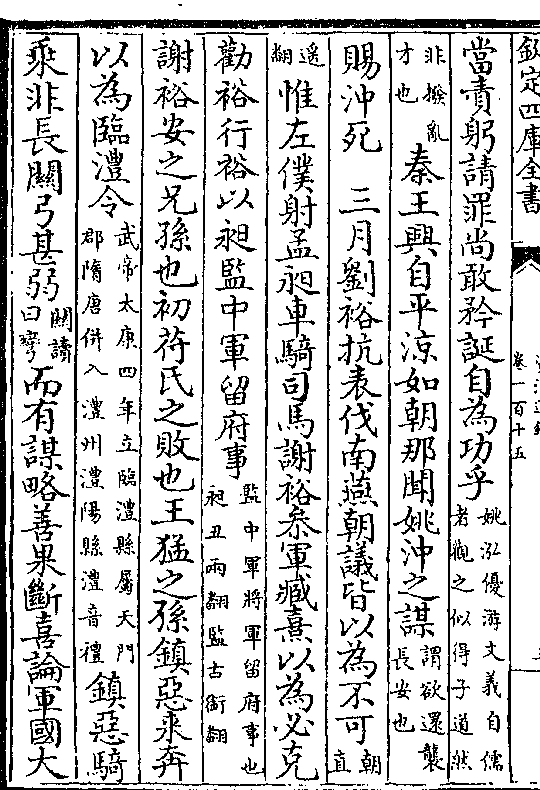 欽定四庫全書
卷一百十五
當責躬請罪尚敢矜誕自為功乎姚泓優游文義自儒者觀之似得子道然
非撥亂才也秦王興自平涼如朝那聞姚沖之謀謂欲還襲長安也
賜沖死　三月劉裕抗表伐南燕朝議皆以為不可朝直
遥翻惟左僕射孟昶車騎司馬謝裕叅軍臧熹以為必克
勸裕行裕以昶監中軍留府事監中軍將軍留府事也昶丑兩翻監古銜翻
謝裕安之兄孫也初苻氏之敗也王猛之孫鎮惡來奔
以為臨澧令武帝太康四年立臨澧縣屬天門郡隋唐併入澧州澧陽縣澧音禮鎮惡騎
乘非長關弓甚弱關讀曰彎而有謀略善果斷喜論軍國大